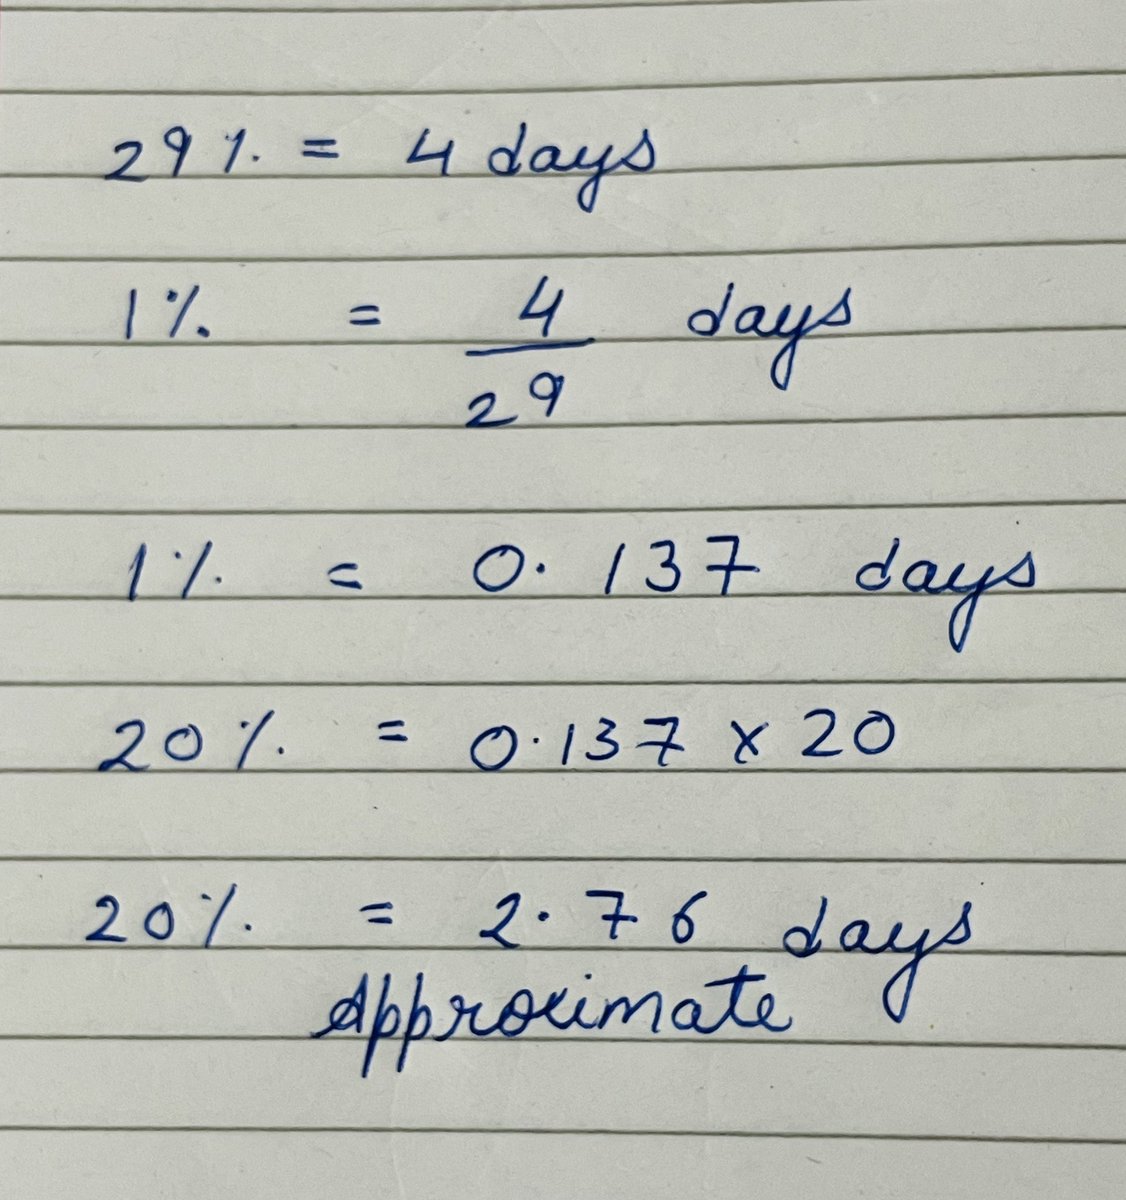 29% = 4 days
1% = 4/29 days
1% = 0.137 days
20% = 0.137 x 20
20% = 2.76 days
Approximate